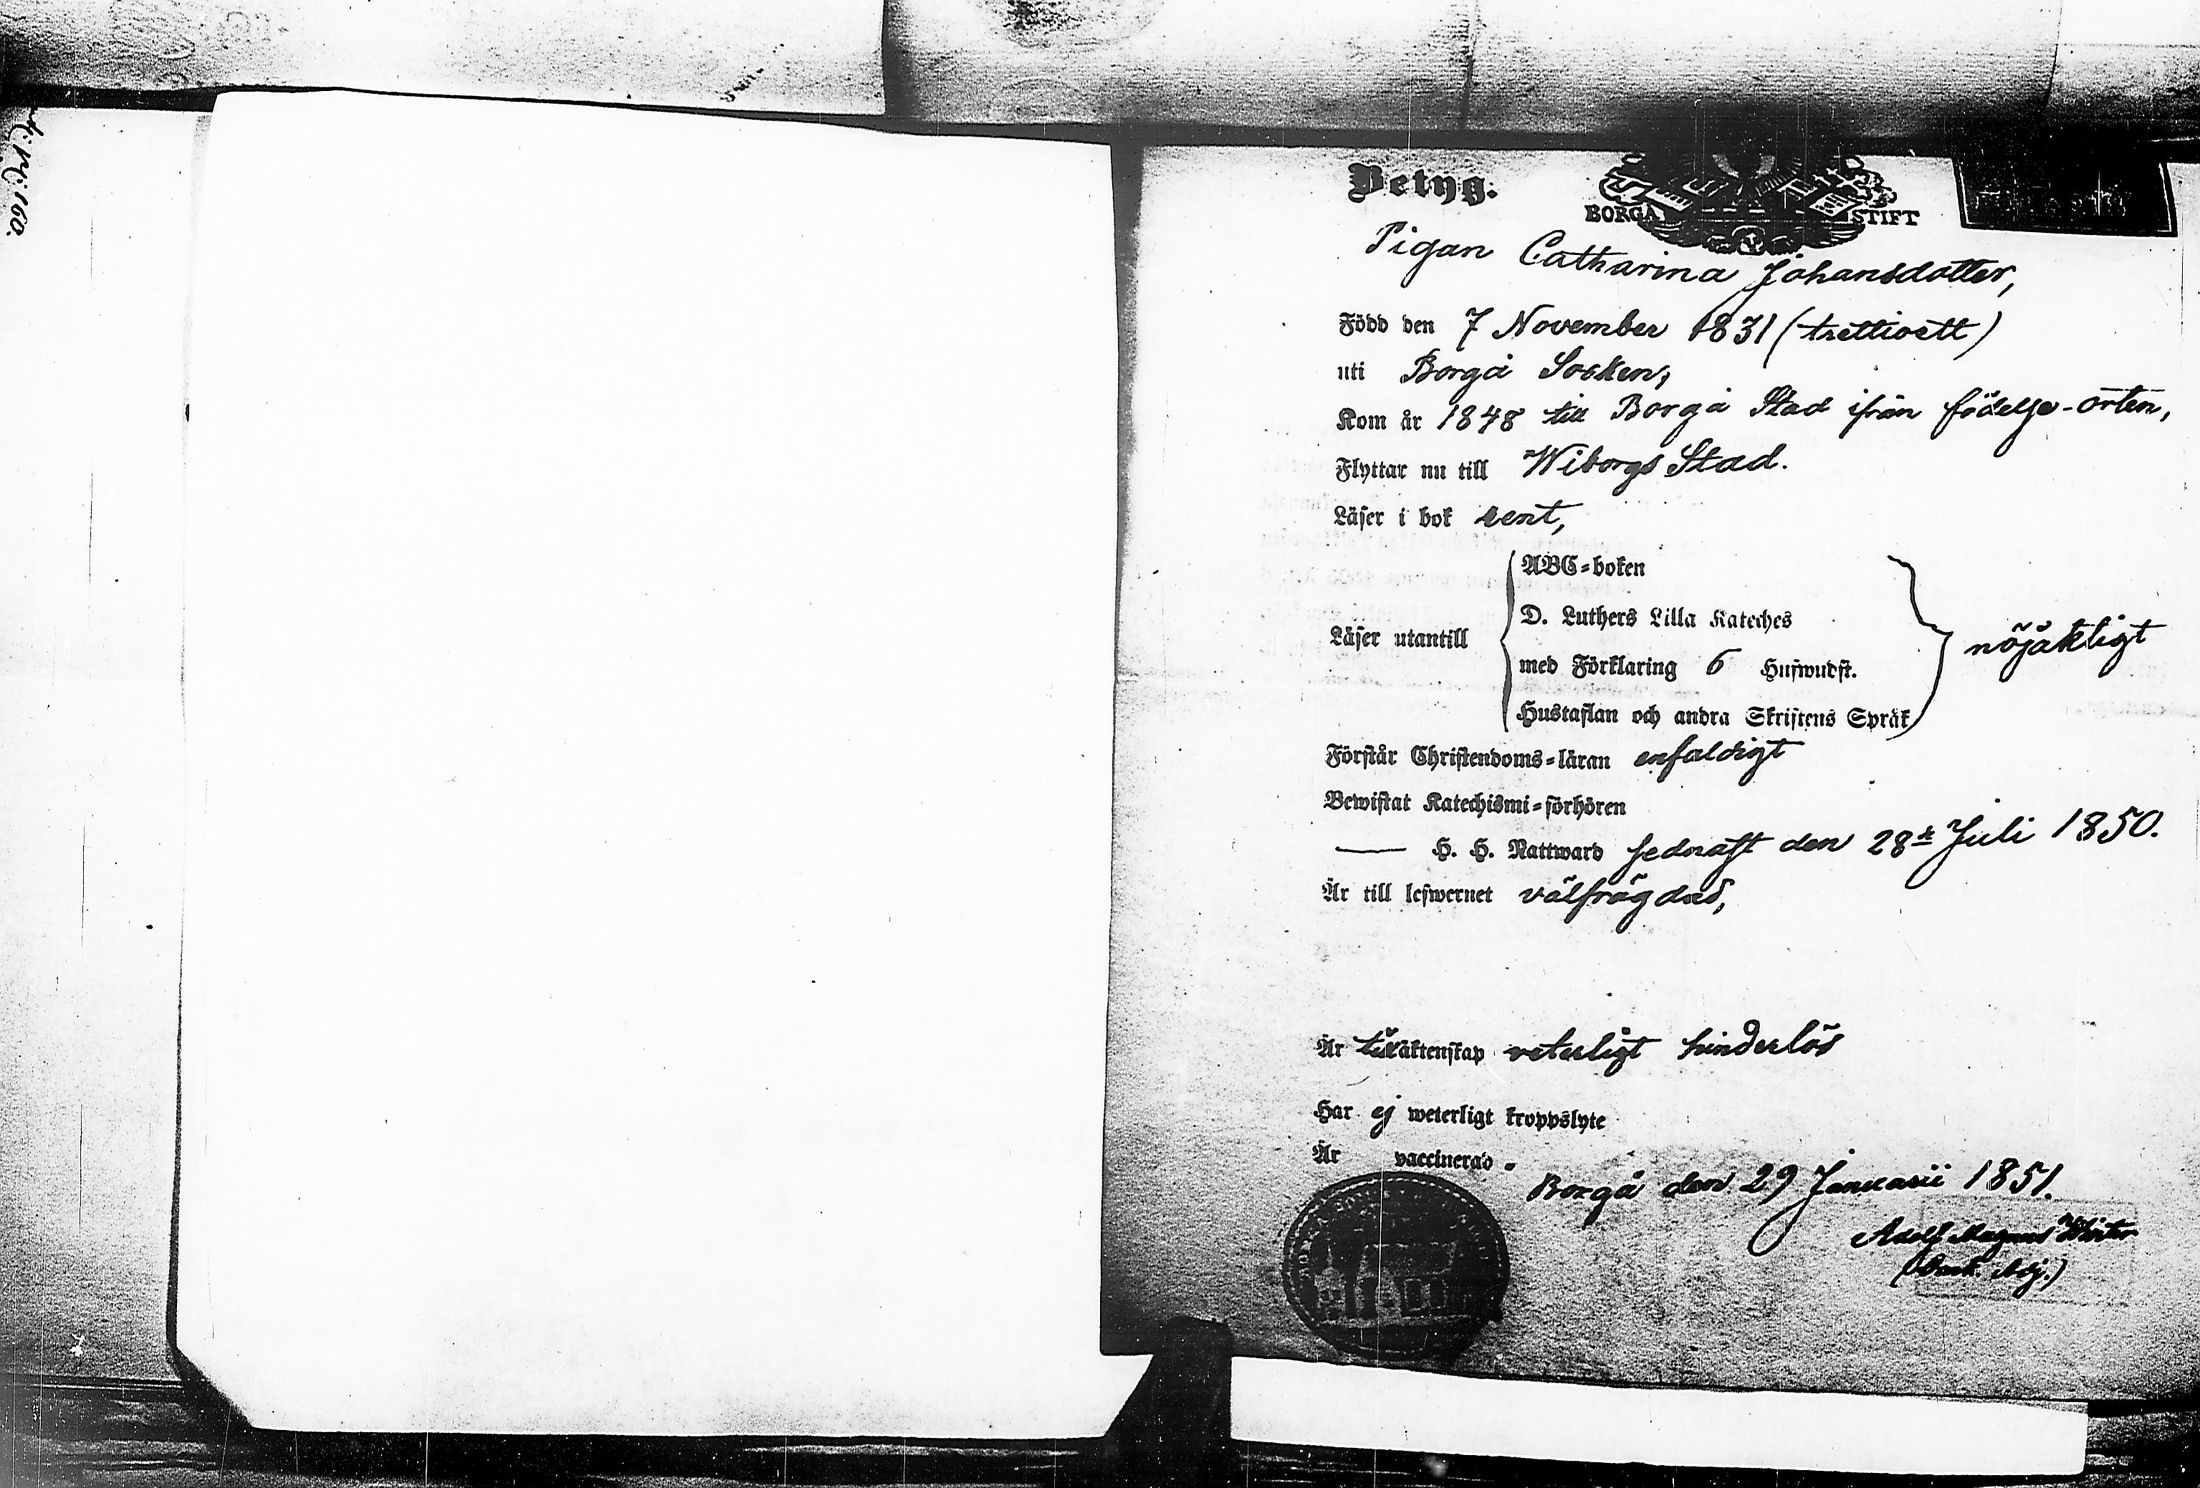 N: 160.
Betyg.
BORGÅ STIFT
Pigan Catharina Johansdotter,
Född den 7 November 1831 (trettioett)
uti Borgå Socken,
Kom år 1848 till Borgå Stad ifrån födelse-orten,
Flyttar nu till Wiborgs Stad.
Läser i bok rent,
ABC-boken
D. Luthers Lilla Kateches
Läser utantill
nöjaktigt
med Förklaring 6 Hufwudst.
Hustaflan och andra Skriftens Språk
Förstår Christendoms-läran enfaldigt
Bewistat Katechismi-förhören
— H. H. Nattward sednast den 28de Juli 1850.
Är till lefwernet välfrägdad,
Är till äktenskap veterligt hinderlös
Har ej weterligt kroppslyte
Är vaccinerad.
Borgå den 29 Januarii 1851.
Adolf Magnus
Adj.)